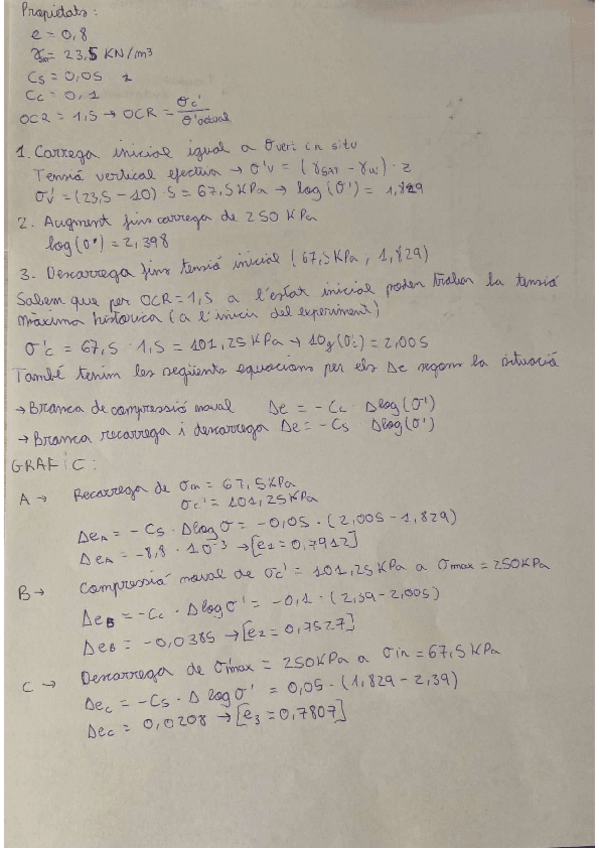 Propietats:
e = 0,8
γsat = 23,5 KN/m³
Cs = 0,05 1
Cc = 0,1
OCR = 1,5 → OCR = σc' / σ'actual
1. Carrega inicial igual a σvert in situ
Tensió vertical efectiva → σ'v = (γSAT - γw) · z
σv' = (23,5 - 10) · 5 = 67,5 KPa → log(σ') = 1,829
2. Augment fins carrega de 250 KPa
log(σ') = 2,398
3. Descarrega fins tensió inicial (67,5 KPa, 1,829)
Sabem que per OCR = 1,5 a l'estat inicial podem trobar la tensió
màxima històrica (a l'inici del experiment)
σ'c = 67,5 · 1,5 = 101,25 KPa → log(σc') = 2,005
També tenim les següents equacions per els Δe segons la situació
→ Branca de compressió noval Δe = -Cc · Δlog(σ')
→ Branca recarrega i descarrega Δe = -Cs Δlog(σ')
GRAFIC:
A → Recarrega de σin = 67,5 KPa
σc' = 101,25 KPa
ΔeA = -Cs · Δlog σ = -0,05 · (2,005 - 1,829)
ΔeA = -8,8 · 10⁻³ → [e1 = 0,7912]
B → Compressió noval de σc' = 101,25 KPa a σmax = 250KPa
ΔeB = -Cc · Δlog σ' = -0,1 · (2,39 - 2,005)
ΔeB = -0,0385 → [e2 = 0,7527]
C → Descarrega de σ'max = 250KPa a σin = 67,5 KPa
Δec = -Cs · Δ log σ' = 0,05 · (1,829 - 2,39)
Δec = 0,0208 → [e3 = 0,7807]